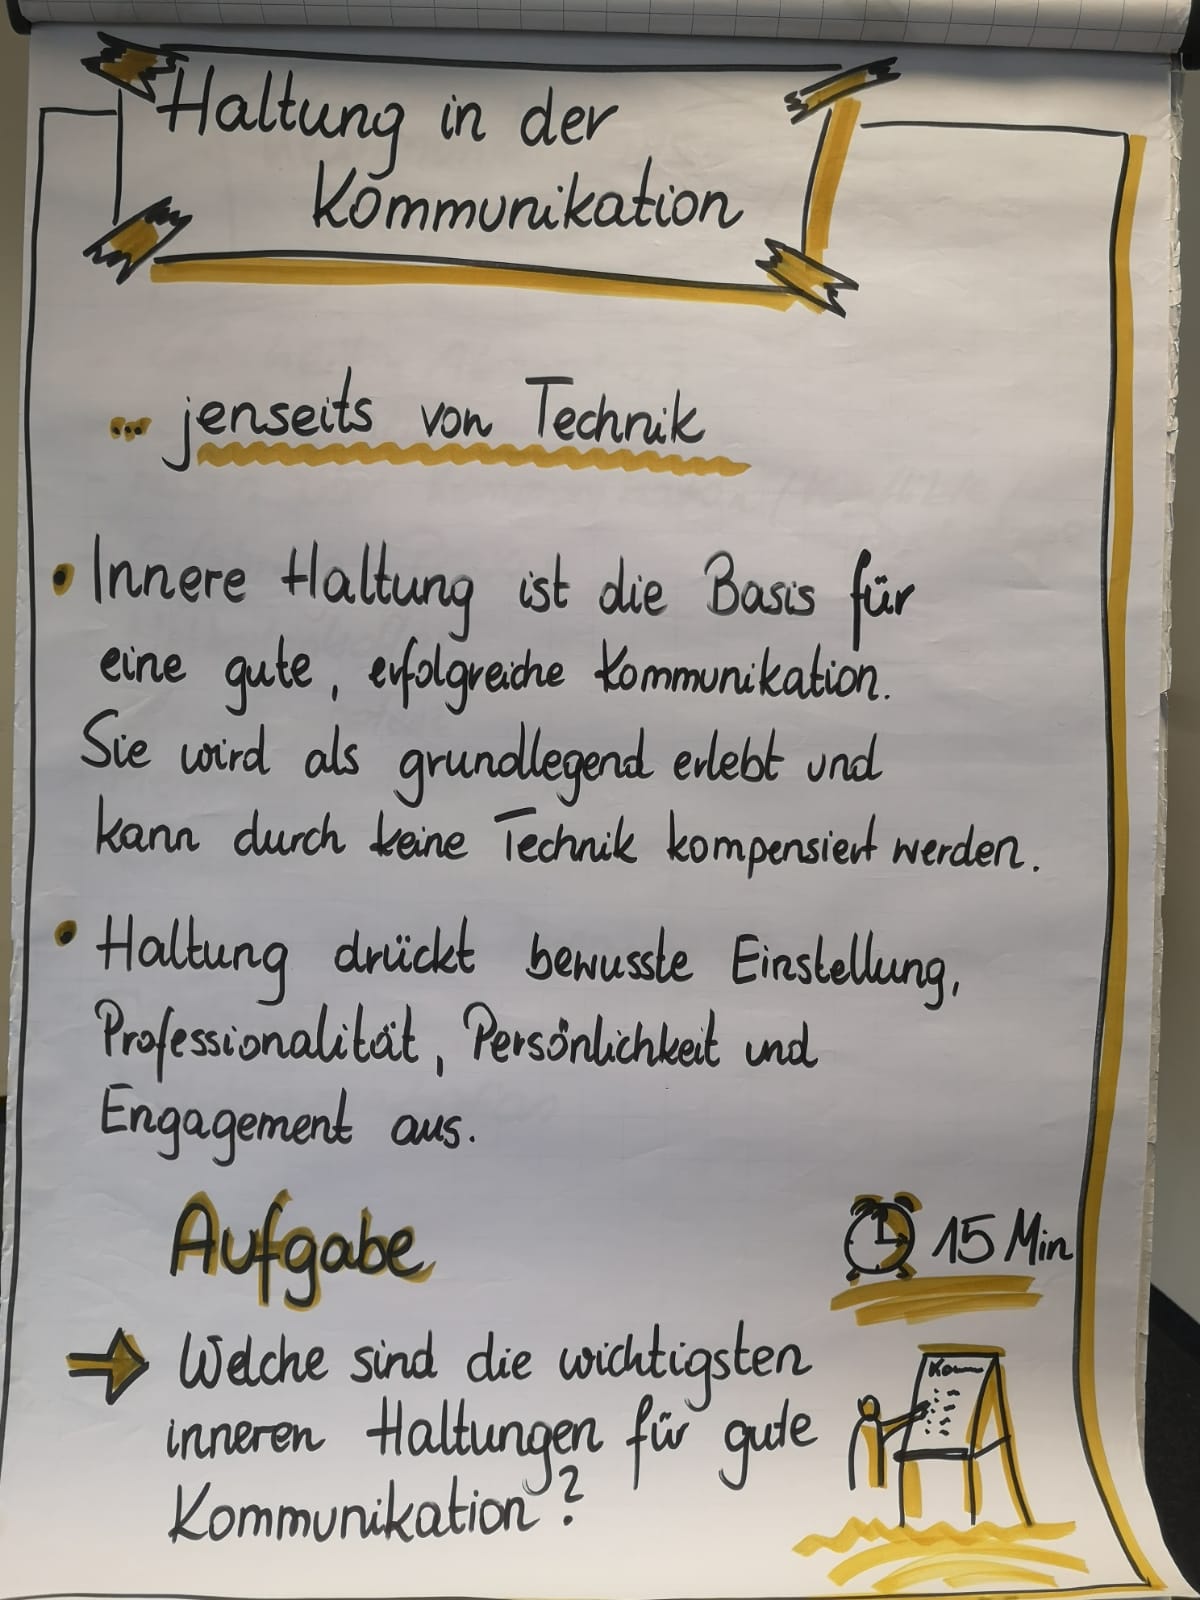 Haltung in der
Kommunikation
... jenseits von Technik
• Innere Haltung ist die Basis für
eine gute, erfolgreiche Kommunikation.
Sie wird als grundlegend erlebt und
kann durch keine Technik kompensiert werden.
• Haltung drückt bewusste Einstellung,
Professionalität, Persönlichkeit und
Engagement aus.
Aufgabe
15 Min
→ Welche sind die wichtigsten
inneren Haltungen für gute
Kommunikation?